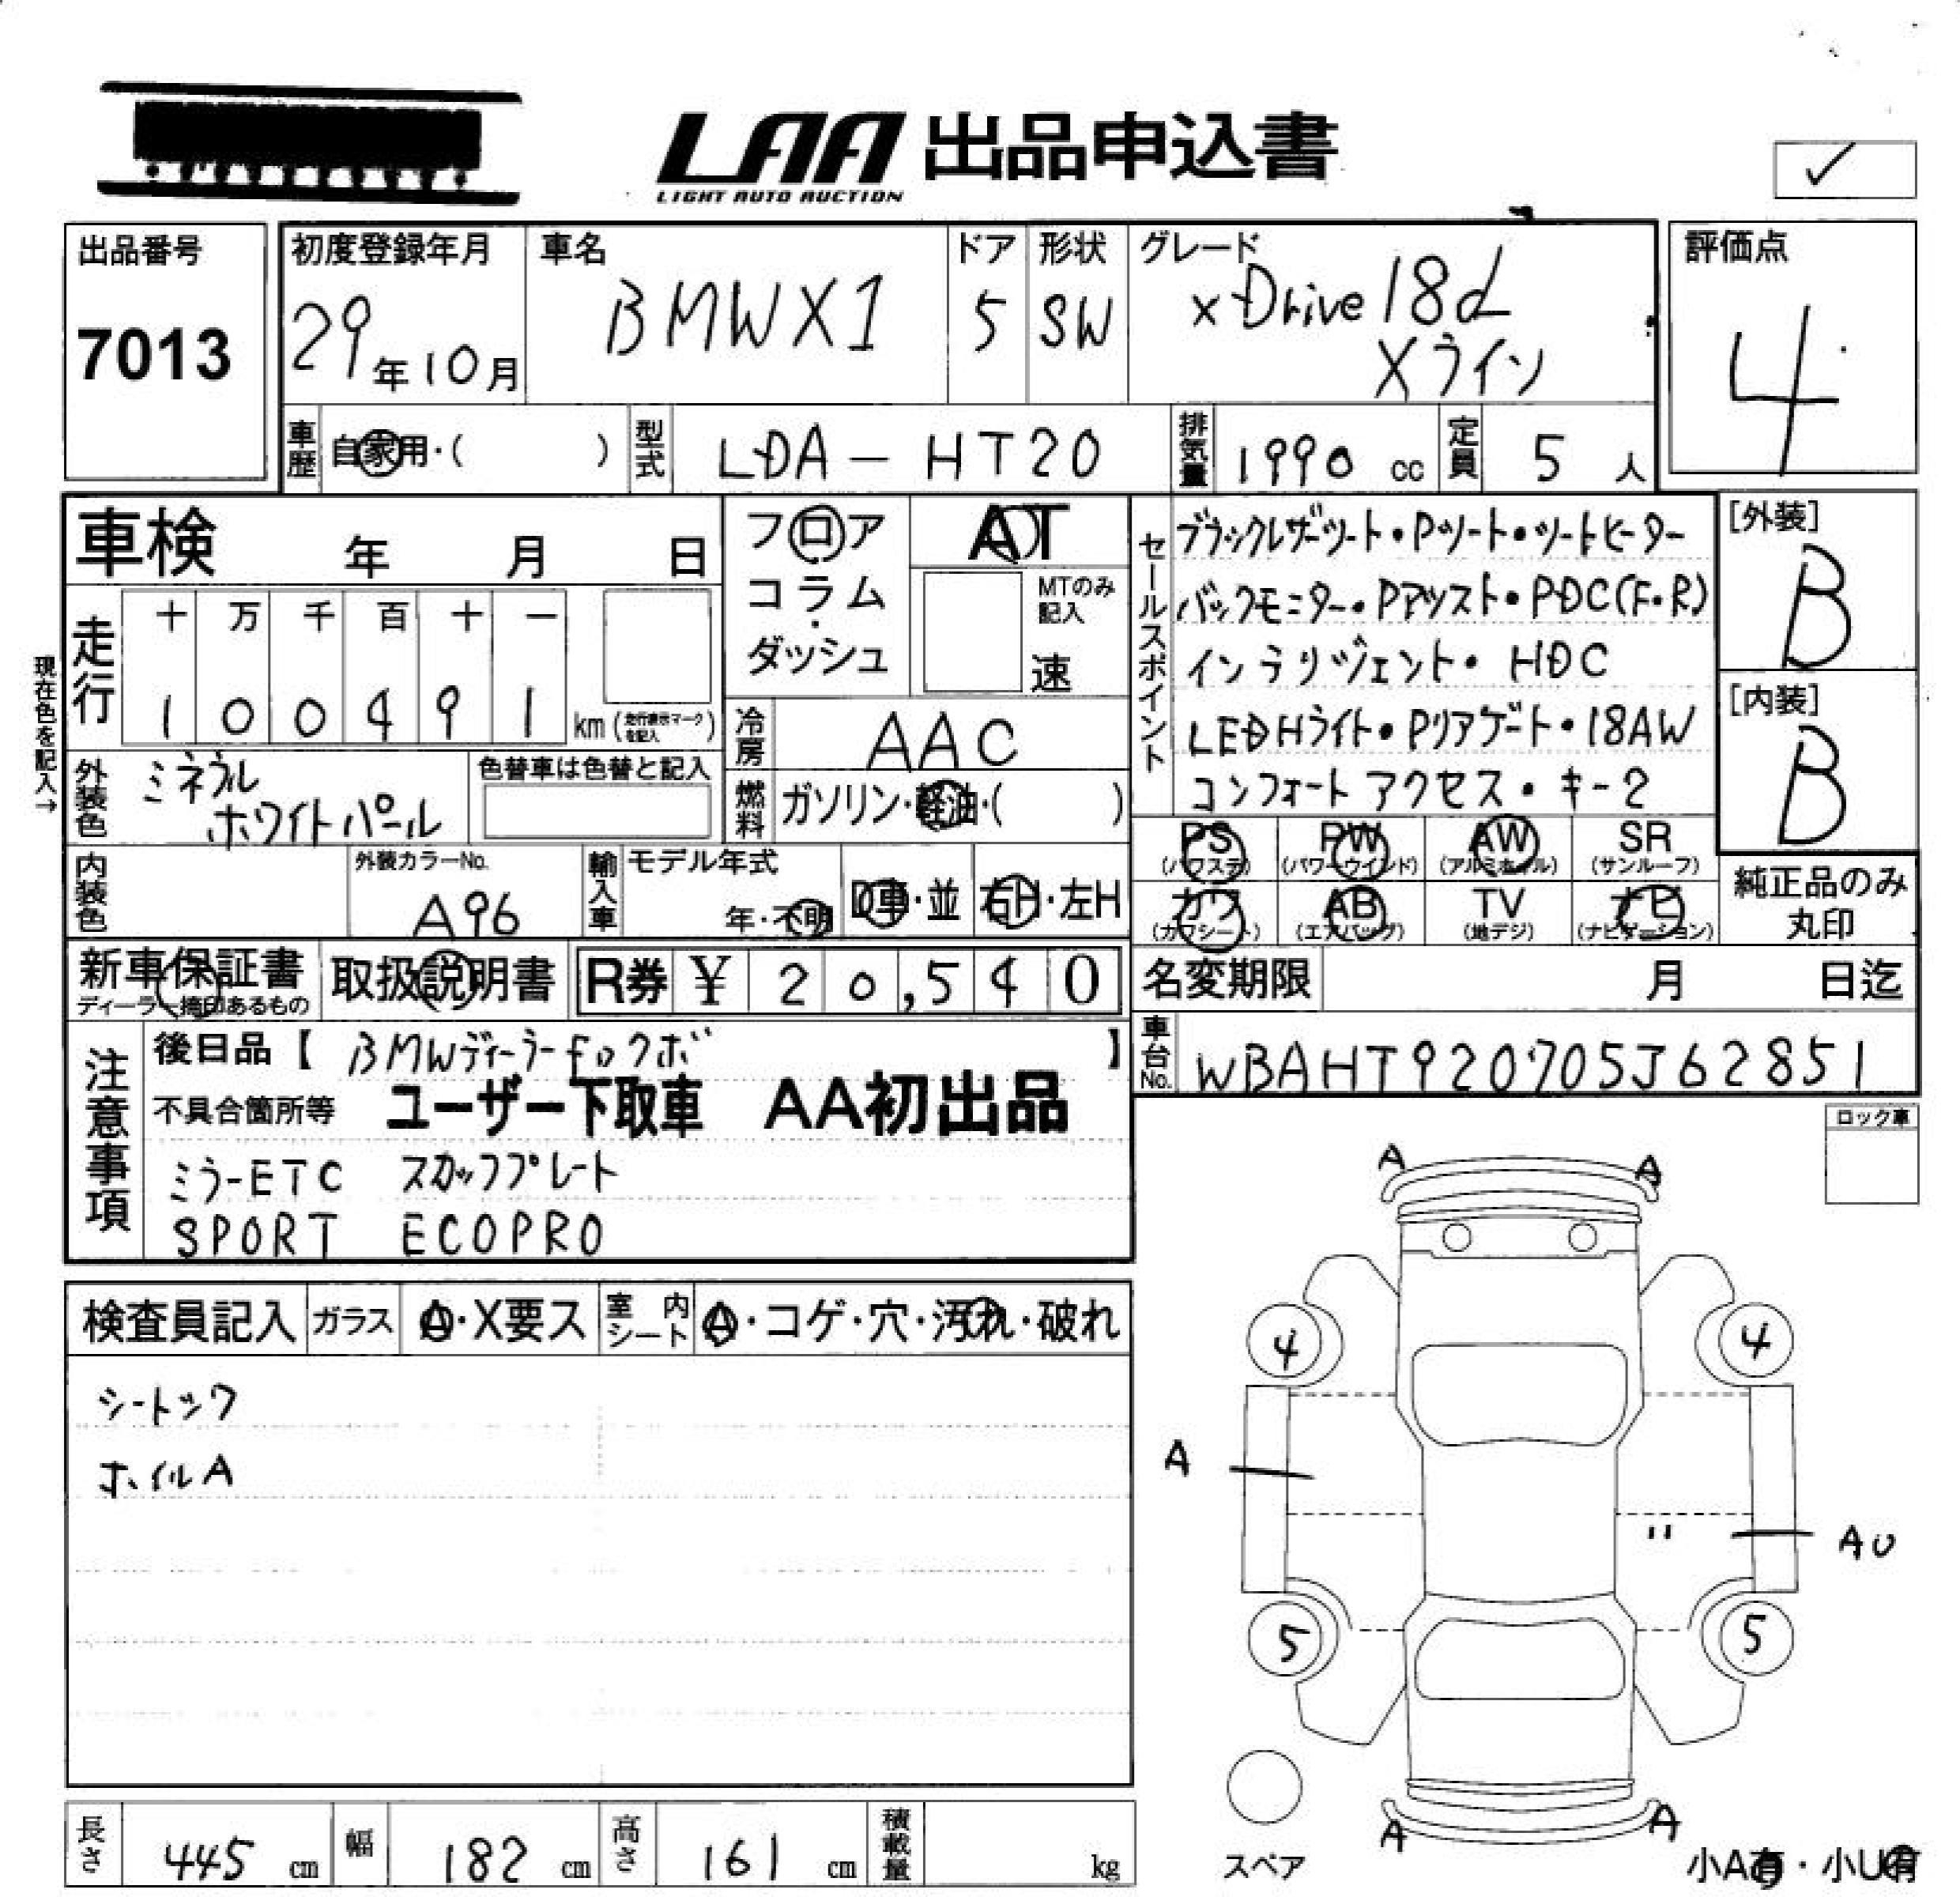 LAA 出品申込書
LIGHT AUTO AUCTION
出品番号
7013
初度登録年月
29年10月
車名
BMW X1
ドア
5
形状
SW
グレード
xDrive 18d
Xライン
評価点
4
車歴
自家用・( )
型式
LDA-HT20
排気量
1990 cc
定員
5 人
車検 年 月 日
フロア
コラム
・
ダッシュ
AT
MTのみ
記入
速
セールスポイント
ブラックレザーシート・Pシート・シートヒーター
バックモニター・Pアシスト・PDC(F・R)
インテリジェント・HDC
LEDHライト・Pリアゲート・18AW
コンフォートアクセス・キー2
[外装]
B
[内装]
B
現在色を記入→
走行
十 万 千 百 十 一
1 0 0 4 9 1 km (走行表示マークを記入)
冷房
AAC
外装色
ミネラル
ホワイトパール
色替車は色替と記入
燃料
ガソリン・軽油・( )
PS (パワステ)
PW (パワーウインド)
AW (アルミホイル)
SR (サンルーフ)
カワ (カワシート)
AB (エアバッグ)
TV (地デジ)
ナビ (ナビゲーション)
純正品のみ
丸印
内装色
外装カラーNo.
A96
輸入車
モデル年式
年・不明
D車・並
右H・左H
新車保証書
ディーラー捺印あるもの
取扱説明書
R券 ¥ 20,540
名変期限 月 日迄
車台No.
WBAHT920705J62851
注意事項
後日品【 BMWディーラーfロクボ 】
不具合箇所等 ユーザー下取車 AA初出品
ミラーETC スカッフプレート
SPORT ECOPRO
ロック車
検査員記入
ガラス
A・X要ス
室内シート
A・コゲ・穴・汚れ・破れ
シートシワ
ホイルA
A
A
4
4
A
〃
AU
5
5
A
A
スペア
小A有・小U有
長さ 445 cm
幅 182 cm
高さ 161 cm
積載量 kg